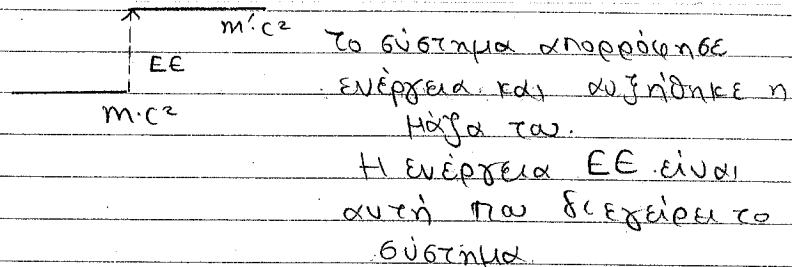 m'·c²
Το σύστημα απορρόφησε
ΕΕ
ενέργεια και αυξήθηκε η
m·c²
μάζα του.
Η ενέργεια ΕΕ είναι
αυτή που διεγείρει το
σύστημα